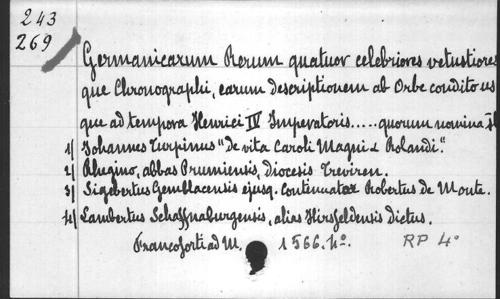 243
269
Germanicarum Rerum quatuor celebriores vetustiores
que Chronographi, earum descriptionem ab Orbe condito us
que ad tempora Henrici IV Imperatoris..... quorum nomina
1/ Johannes Turpinus "De vita Caroli Magni & Rolandi".
2/ Rhegino, abbas Prumiensis, diocesis Treviren.
3/ Sigebertus Gemblacensis ejusq. Continuator Robertus de Monte.
4/ Lambertus Schaffnaburgensis, alias Hirsfeldensis dictus.
Francoforti ad M. 1566. 4o.
RP 4o